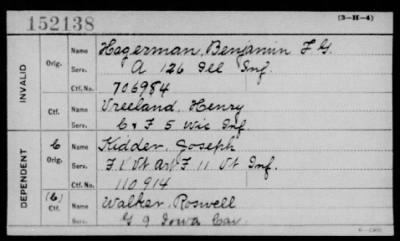 152138
(3-H-4)
INVALID
Orig.
Name Hagerman, Benjamin F G.
Serv. A 126 Ill Inf.
Ctf. No. 706984
Ctf.
Name Vreeland, Henry
Serv. C & F 5 Wis Inf.
DEPENDENT
6
Orig.
Name Kidder, Joseph
Serv. F. 1 Vt Art F 11 Vt Inf.
Ctf. No. 110914
(6)
Ctf.
Name Walker, Roswell
Serv. G 9 Iowa Cav.